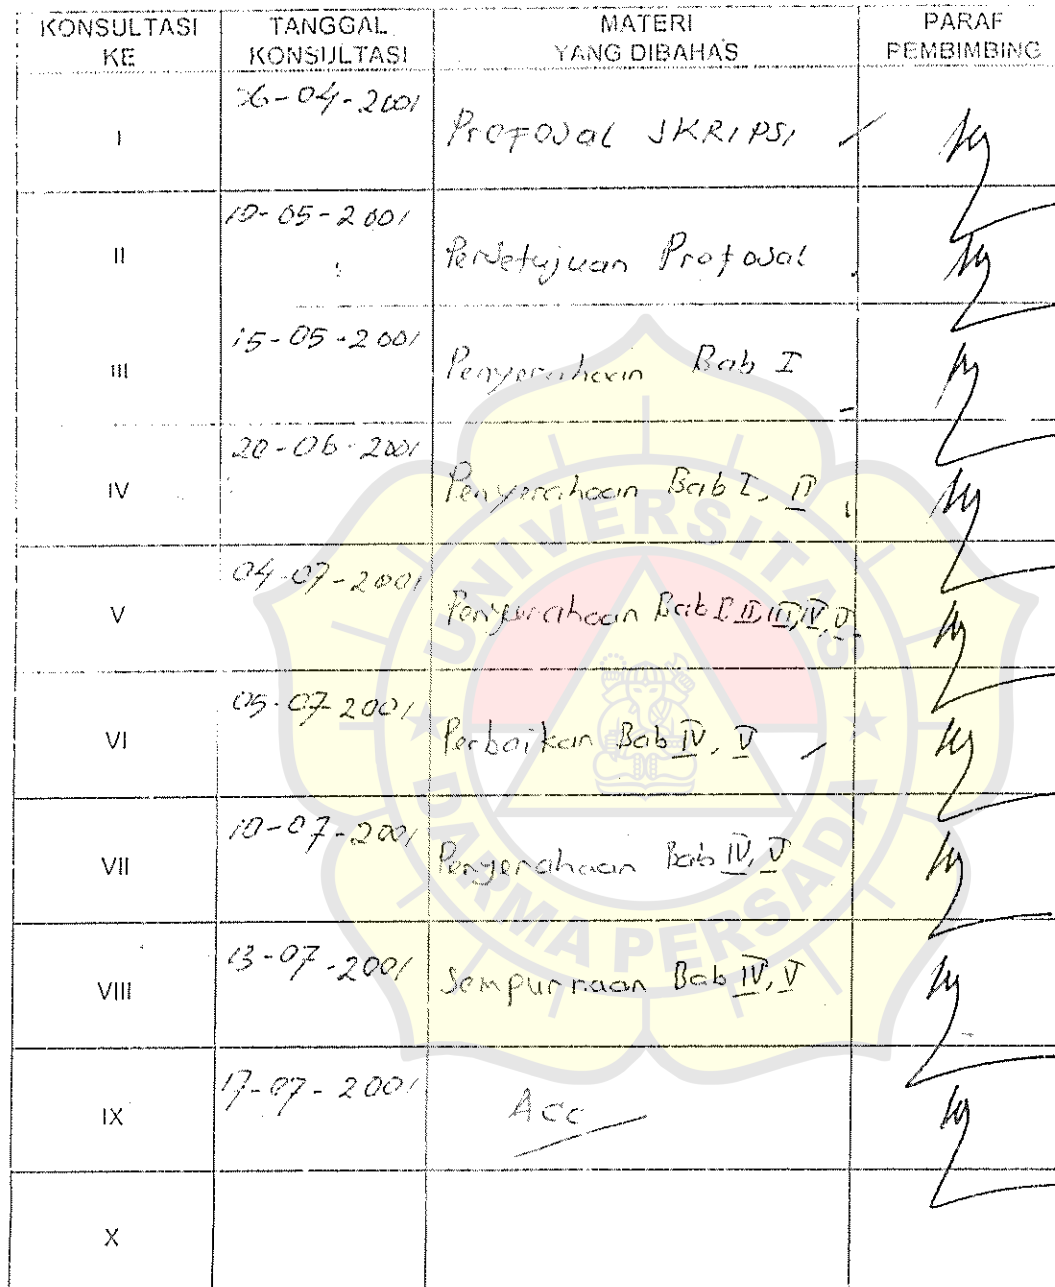 KONSULTASI KE
TANGGAL KONSULTASI
MATERI YANG DIBAHAS
PARAF PEMBIMBING
I
-04-2001
Proposal SKRIPSI
II
10-05-2001
Persetujuan Proposal
III
15-05-2001
Penyerahaan Bab I
IV
20-06-2001
Penyerahaan Bab I, II
V
04-07-2001
Penyerahaan Bab I, II, III, IV, V
VI
05-07-2001
Perbaikan Bab IV, V
VII
10-07-2001
Penyerahaan Bab IV, V
VIII
13-07-2001
Sempurnaan Bab IV, V
IX
17-07-2001
Acc
X
UNIVERSITAS
DARMA PERSADA